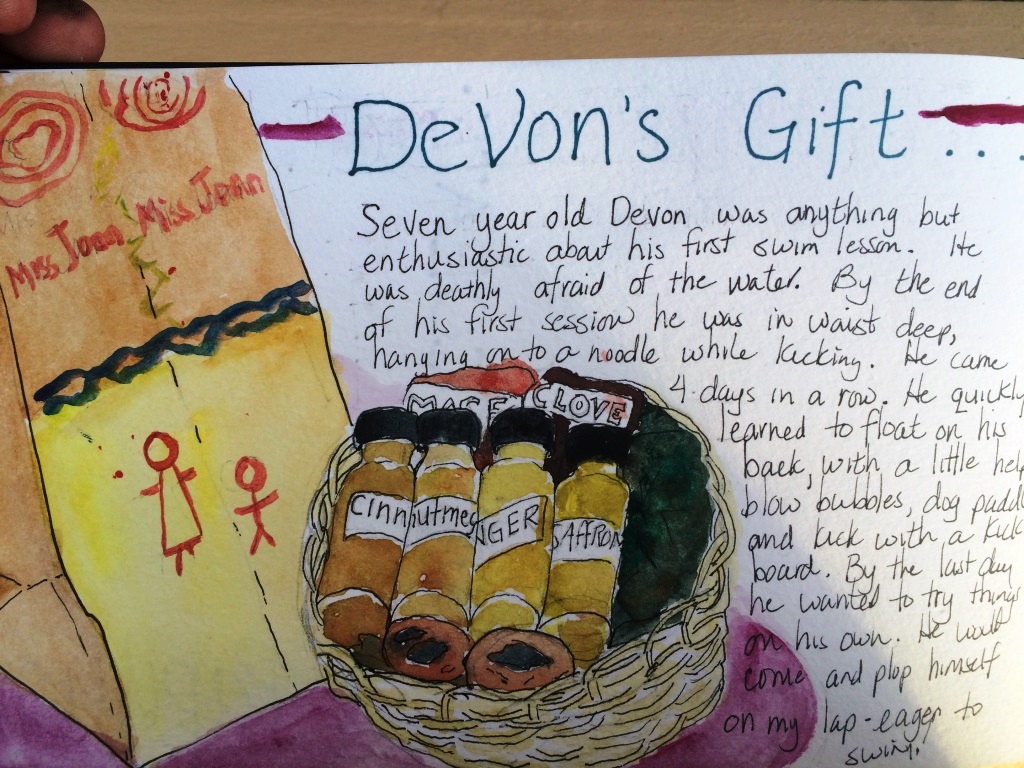 Miss Joan, Miss Joann
DeVon's Gift...
Seven year old Devon was anything but
enthusiastic about his first swim lesson. He
was deathly afraid of the water. By the end
of his first session he was in waist deep,
hanging on to a noodle while kicking. He came
4 days in a row. He quickly
learned to float on his
back, with a little help
blow bubbles, dog paddl
and kick with a kick
board. By the last day
he wanted to try things
on his own. He would
come and plop himself
on my lap - eager to
swim.
CINN
NUTMEG
NGER
SAFFRON
MACE
CLOVE